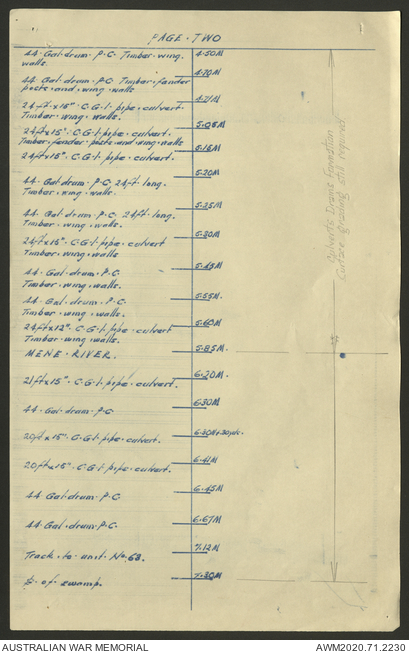 PAGE · TWO
44 · Gal · drum · P · C · Timber · wing · 4·50M
walls.
44 Gal · drum · P · C · Timber · fender 4·70M
posts · and · wing · walls
24ft x 15" · C · G · I · pipe · culvert · 4·71M
Timber · wing · walls.
24ft x 15" · C · G · I · pipe · culvert. 5·05M
Timber · fender · posts · and · wing · walls
24ft x 15" · C · G · I · pipe · culvert. 5·15M
44 · Gal · drum · P · C, 24ft · long. 5·20M
Timber · wing · walls.
44 · Gal · drum · P · C, 24ft · long. 5·25M
Timber · wing · walls.
24ft x 15" · C · G · I · pipe · culvert 5·30M
Timber · wing · walls
44 · Gal · drum · P · C 5·45M
Timber · wing · walls.
44 · Gal · drum · P · C 5·55M.
Timber · wing · walls.
24ft x 12" · C · G · I · pipe · culvert 5·60M
Timber · wing · walls.
MENE · RIVER. 5·85M.
21ft x 15" · C · G · I · pipe · culvert. 6·20M.
44 · Gal · drum · P · C 6·30M
20ft x 15" · C · G · I · pipe · culvert. 6·30M+30yds.
20ft x 15" · C · G · I · pipe · culvert. 6·41M
44 · Gal · drum · P · C 6·45M
44 · Gal · drum · P · C. 6·67M
Track · to · unit · No. 63. 7·12M
of · swamp. 7·30M
Culverts Drains Formation
Surface grading still required
AUSTRALIAN WAR MEMORIAL
AWM2020.71.2230